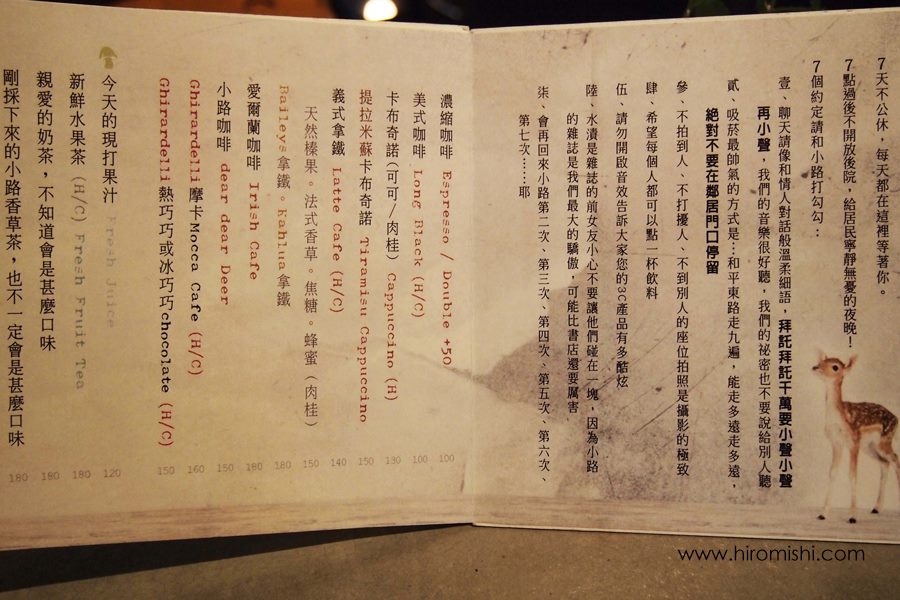 7天不公休，每天都在這裡等著你。
7點過後不開放後院，給居民寧靜無憂的夜晚！
7個約定請和小路打勾勾：
壹、聊天請像和情人對話般溫柔細語，拜託拜託千萬要小聲小聲
再小聲，我們的音樂很好聽，我們的祕密也不要說給別人聽
貳、吸菸最帥氣的方式是…和平東路走九遍，能走多遠走多遠，
絕對不要在鄰居門口停留
參、不拍到人、不打擾人、不到別人的座位拍照是攝影的極致
肆、希望每個人都可以點一杯飲料
伍、請勿開啟音效告訴大家您的3C產品有多酷炫
陸、水漬是雜誌的前女友小心不要讓他們碰在一塊，因為小路
的雜誌是我們最大的驕傲，可能比書店還要厲害
柒、會再回來小路第一次、第三次、第四次、第五次、第六次、
第七次……耶
濃縮咖啡 Espresso / Double +50 100
美式咖啡 Long Black (H/C) 100
卡布奇諾(可可/肉桂) Cappuccino (H) 130
提拉米蘇卡布奇諾 Tiramisu Cappuccino 150
義式拿鐵 Latte Cafe (H/C) 140
天然榛果。法式香草。焦糖。蜂蜜(肉桂) 150
Baileys拿鐵。Kahlua拿鐵 180
愛爾蘭咖啡 Irish Cafe 180
小路咖啡 dear dear Deer 150
Ghirardelli 摩卡Mocca Cafe (H/C) 160
Ghirardelli 熱巧巧或冰巧巧chocolate (H/C) 150
今天的現打果汁 Fresh Juice 120
新鮮水果茶 (H/C) Fresh Fruit Tea 180
親愛的奶茶，不知道會是甚麼口味 180
剛採下來的小路香草茶，也不一定會是甚麼口味 180
www.hiromishi.com